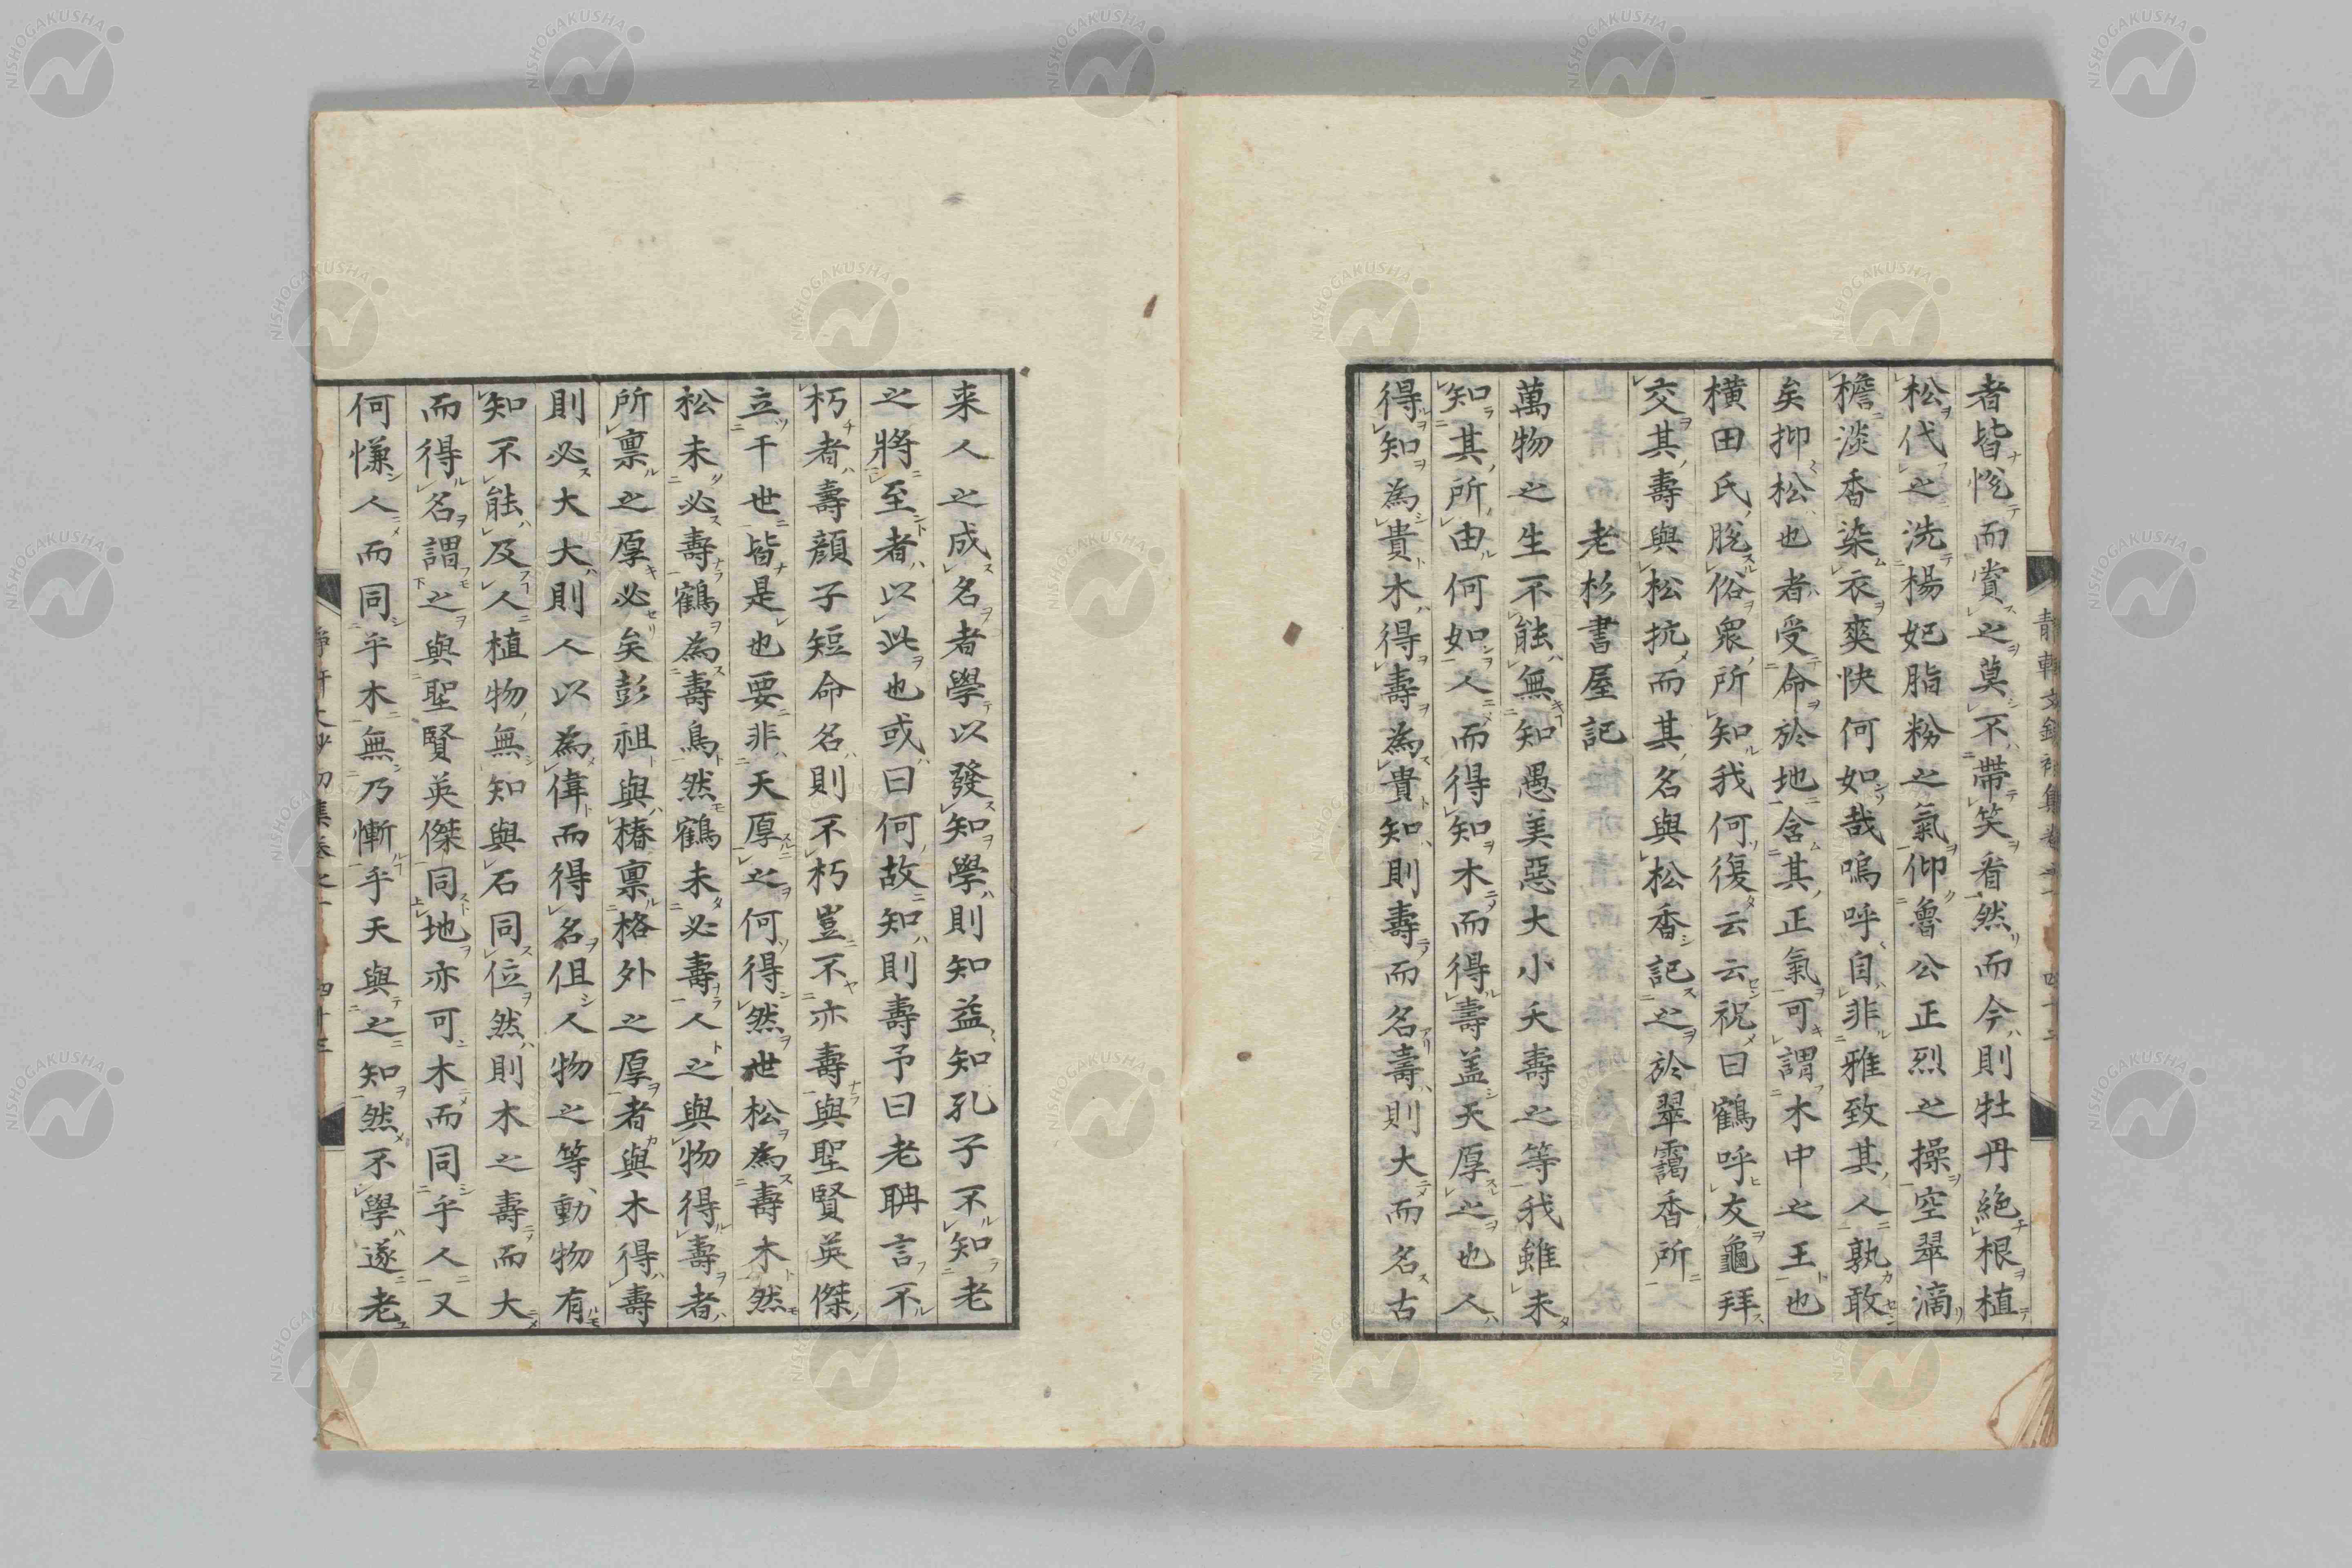 者皆悅而賞之莫不帶笑看然而今則牡丹絶根植
松代之洗楊妃脂粉之氣仰魯公正烈之操空翠滴
檐淡香染衣爽快何如哉嗚呼自非雅致其人孰敢
矣抑松也者受命於地含其正氣可謂木中之王也
横田氏脫俗衆所知我何復云云祝曰鶴呼友龜拜
交其壽與松抗而其名與松香記之於翠靄香所
老杉書屋記
萬物之生不能無知愚美惡大小夭壽之等我雖未
知其所由何如人而得知木而得壽盖天厚之也人
得知為貴木得壽為貴知則壽而名壽則大而名古
来人之成名者學以發知學則知益知孔子不知老
之將至者以此也或曰何故知則壽予曰老聃言不
朽者壽顔子短命名則不朽豈不亦壽與聖賢英傑
立干世皆是也要非天厚之何得然世松為壽木然
松未必壽鶴為壽鳥然鶴未必壽人之與物得壽者
所禀之厚必矣彭祖與椿禀格外之厚者與木得壽
則必大大則人以為偉而得名伹人物之等動物有
知不能及人植物無知與石同位然則木之壽而大
而得名謂之與聖賢英傑同地亦可木而同乎人又
何慊人而同乎木無乃慚乎天與之知然不學遂老
靜軒文鈔初集卷之一 四十二
NISHOGAKUSHA